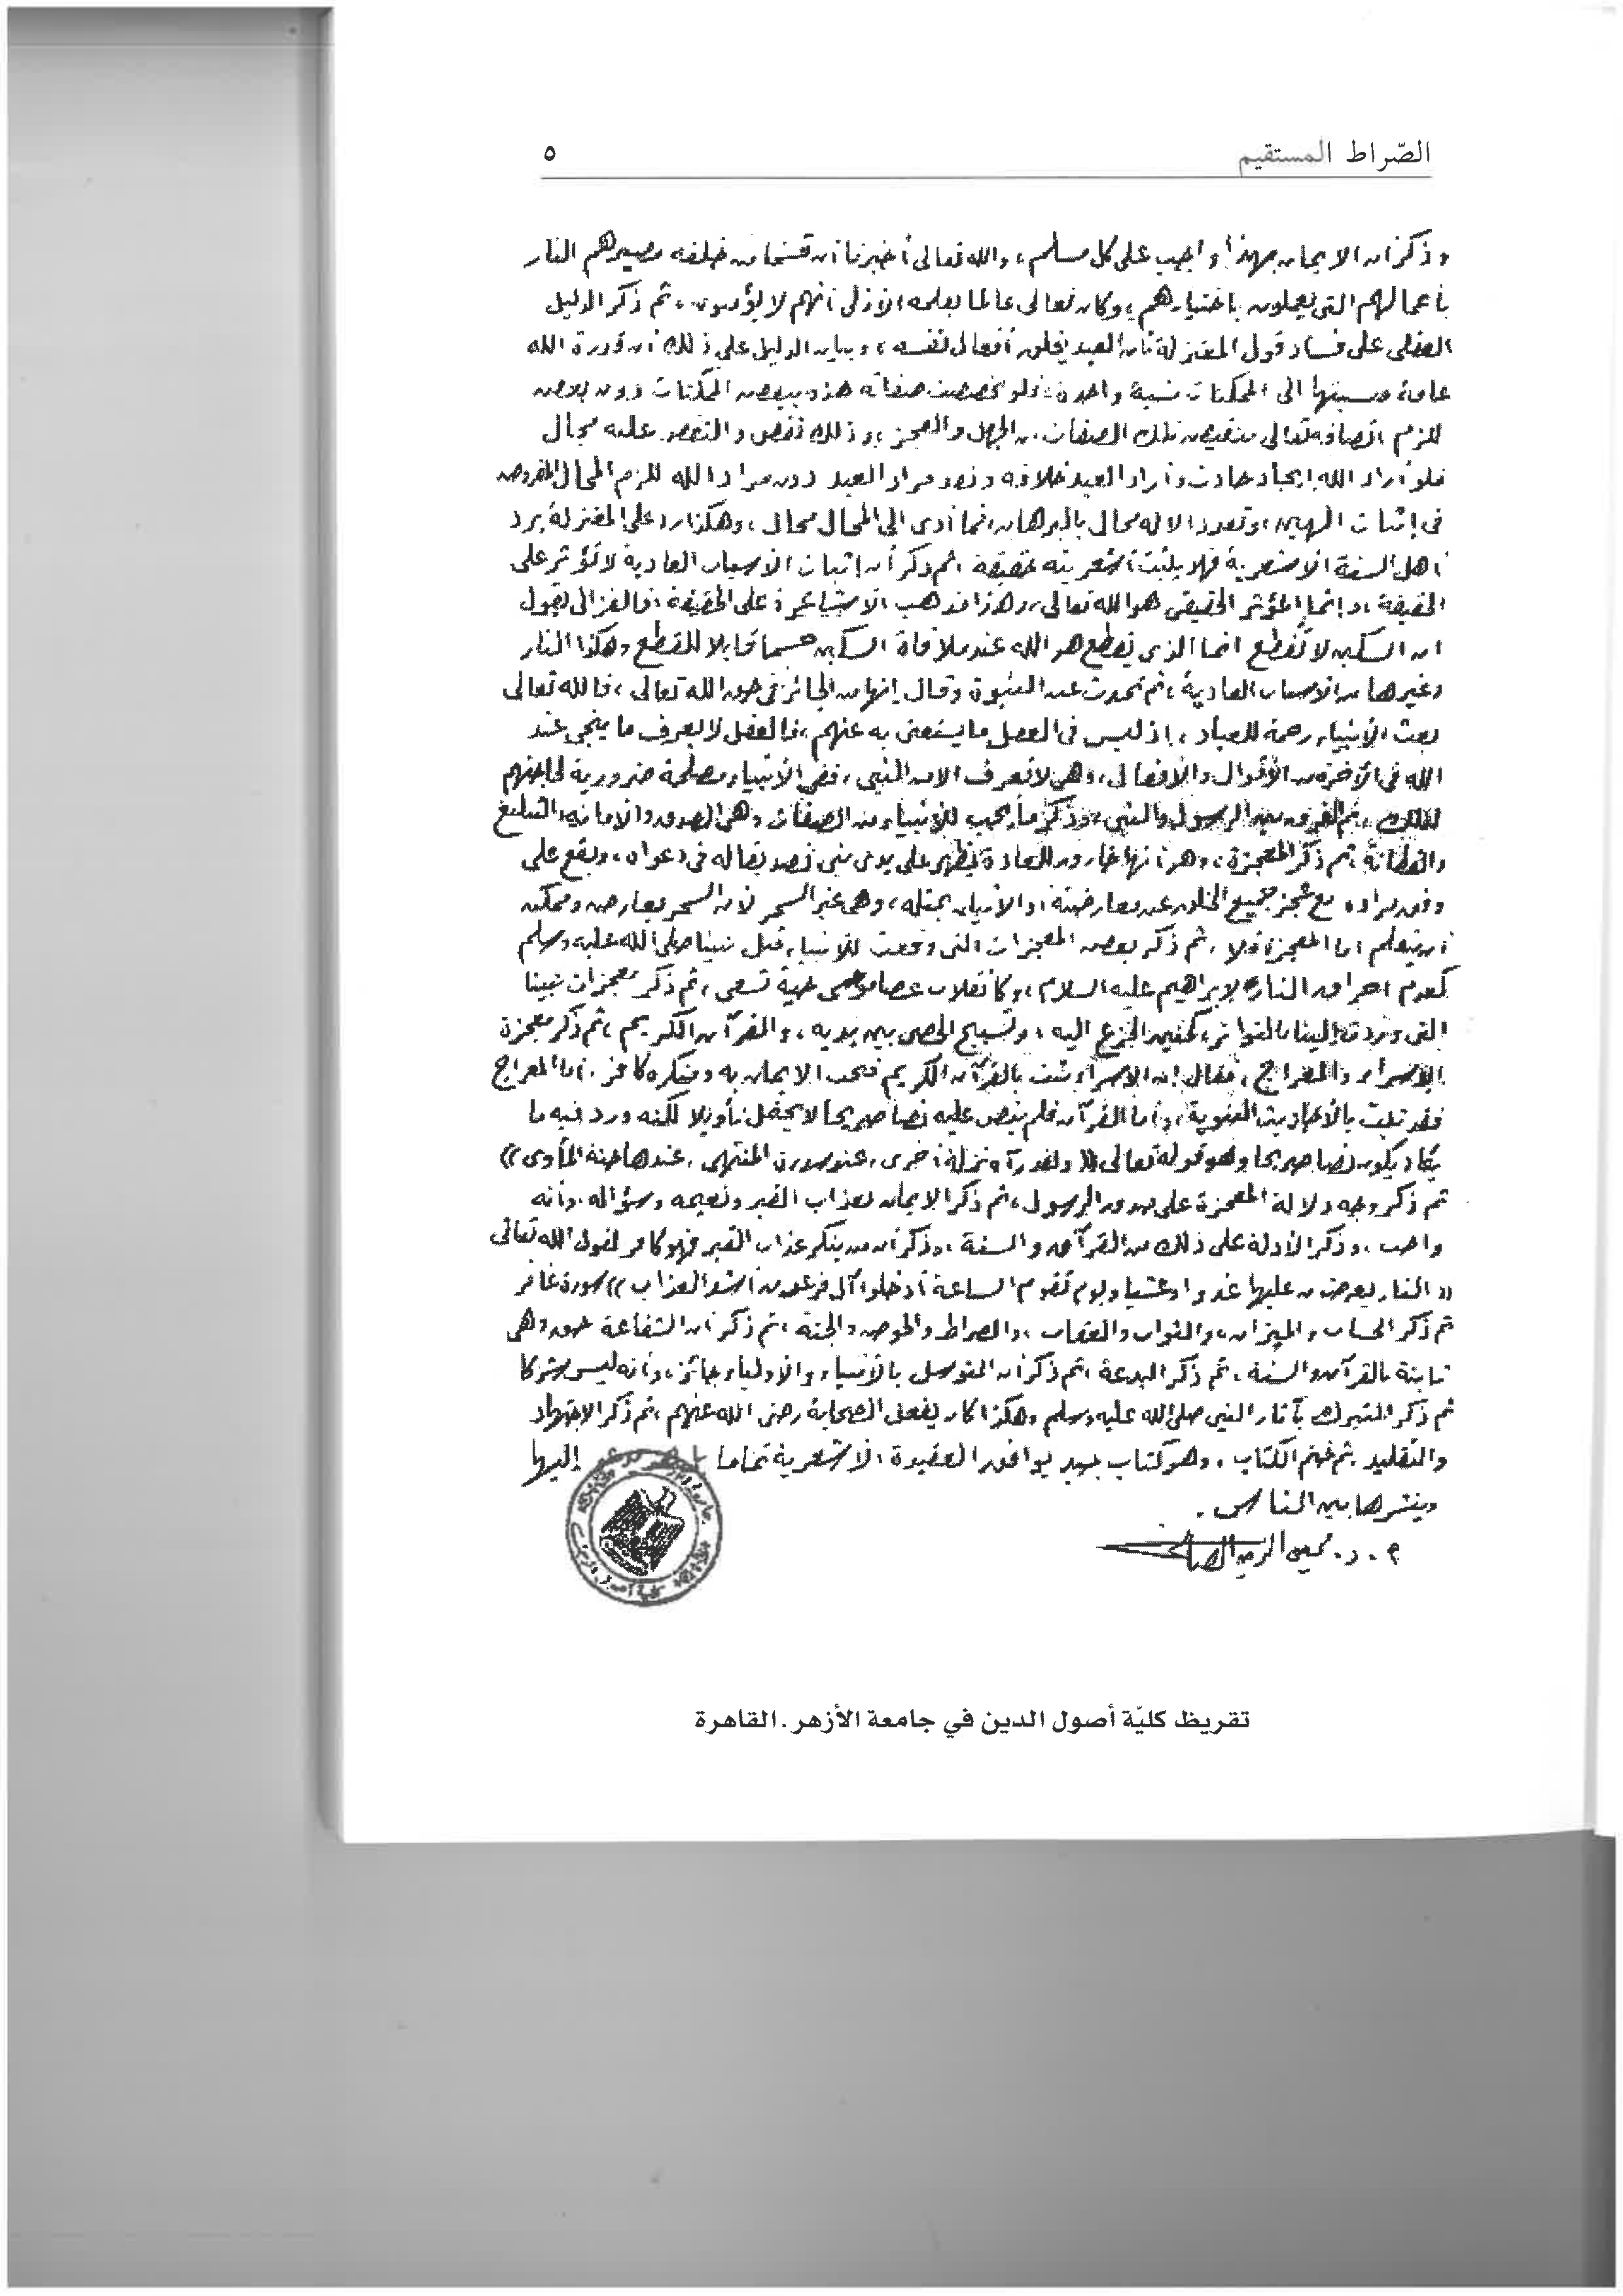 الصّراط المستقيم ٥
وذكر أن الايمان بهذا واجب على كل مسلم، والله تعالى أخبرنا أن قسما من خلقه مصيرهم النار
بأعمالهم التى يعملون باختيارهم، وكان تعالى عالما بعلمه الأزلى أنهم لا يؤمنون، ثم ذكر الدليل
العقلى على فساد قول المعتزلة بأن العبد يخلق أفعال نفسه، وبيان الدليل على ذلك أن قدرة الله
عامة ونسبتها الى الممكنات نسبة واحدة، فلو تخصصت صفاته هذه ببعض الممكنات دون بعض
للزم اتصافه تعالى بنقيض تلك الصفات من الجهل والعجز، وذلك نقص والنقص عليه محال
فلو أراد الله إيجاد حادث وأراد العبد خلافه ونفذ مراد العبد دون مراد الله للزم المحال المفروض
فى إثبات الهين، وتعدد الاله محال بالبرهان، فما أدى الى المحال محال، وهكذا رد على المعتزلة برد
أهل السنة الأشعرية فهو يثبت أشعريته حقيقة، ثم ذكر أن إثبات الأسباب العادية لا تؤثر على
الحقيقة، وإنما المؤثر الحقيقى هو الله تعالى، وهذا مذهب الأشاعرة على الحقيقة، فالغزالى يقول
ان السكين لا تقطع انما الذى يقطع هو الله عند ملاقاة السكين جسما قابلا للقطع وهكذا النار
وغيرها من الأسباب العادية، ثم تحدث عن النبوة وقال إنها من الجائز فى حق الله تعالى، فالله تعالى
بعث الأنبياء رحمة للعباد، إذ ليس فى العقل ما يستغنى به عنهم، فالعقل لا يعرف ما ينجى عند
الله فى الآخرة من الأقوال والأفعال، وهى لا تعرف الا من النبى، ففى الأنبياء مصلحة ضرورية لحاجتهم
لذلك، ثم الفرق بين الرسول والنبى، وذكر ما يجب للأنبياء من الصفات وهى الصدق والأمانة والتبليغ
والفطانة، ثم ذكر المعجزة، وهى أنها خارق للعادة يظهر على يدى نبى تصديقا له فى دعواه، ويقع على
وفق مراده مع عجز جميع الخلق عن معارضته، والاتيان بمثله، وهى غير السحر لأن السحر يعارض وممكن
أن يتعلم اما المعجزة فلا، ثم ذكر بعض المعجزات التى وقعت للأنبياء قبل نبينا صلى الله عليه وسلم
كعدم احراق النار لإبراهيم عليه السلام، وكانقلاب عصا موسى حية تسعى، ثم ذكر معجزات نبينا
التى وردت إلينا بالتواتر، كحنين الجزع اليه، وتسبيح الحصى بين يديه، والقرآن الكريم، ثم ذكر معجزة
الإسراء والمعراج، فقال إن الإسراء ثبت بالقرآن الكريم فيجب الايمان به ومنكره كافر، أما المعراج
فقد ثبت بالأحاديث النبوية، وأما القرآن فلم ينص عليه نصا صريحا لا يحتمل تأويلا لكنه ورد فيه ما
يكاد يكون نصا صريحا وهو قوله تعالى (( ولقد رآه نزلة أخرى، عند سدرة المنتهى، عندها جنة المأوى ))
ثم ذكر وجه دلالة المعجزة على صدق الرسول، ثم ذكر الايمان بعذاب القبر ونعيمه وسؤاله، وأنه
واجب، وذكر الأدلة على ذلك من القرآن والسنة، وذكر أن من ينكر عذاب القبر فهو كافر لقول الله تعالى
(( النار يعرضون عليها غدوا وعشيا ويوم تقوم الساعة أدخلوا آل فرعون أشد العذاب )) سورة غافر
ثم ذكر الحساب والميزان، والثواب والعقاب، والصراط والحوض والجنة، ثم ذكر أن الشفاعة حق وهى
ثابتة بالقرآن والسنة، ثم ذكر البدعة، ثم ذكر أن التوسل بالأنبياء والأولياء جائز، وأنه ليس شركا
ثم ذكر التبرك بآثار النبى صلى الله عليه وسلم وهكذا كان يفعل الصحابة رضى الله عنهم، ثم ذكر الاجتهاد
والتقليد، ثم ختم الكتاب، وهو كتاب جيد يوافق العقيدة الأشعرية تماما إليها
وينشرها بين الناس.
أ.د. محيى الدين الصافى
تقريظ كليّة أصول الدين في جامعة الأزهر. القاهرة